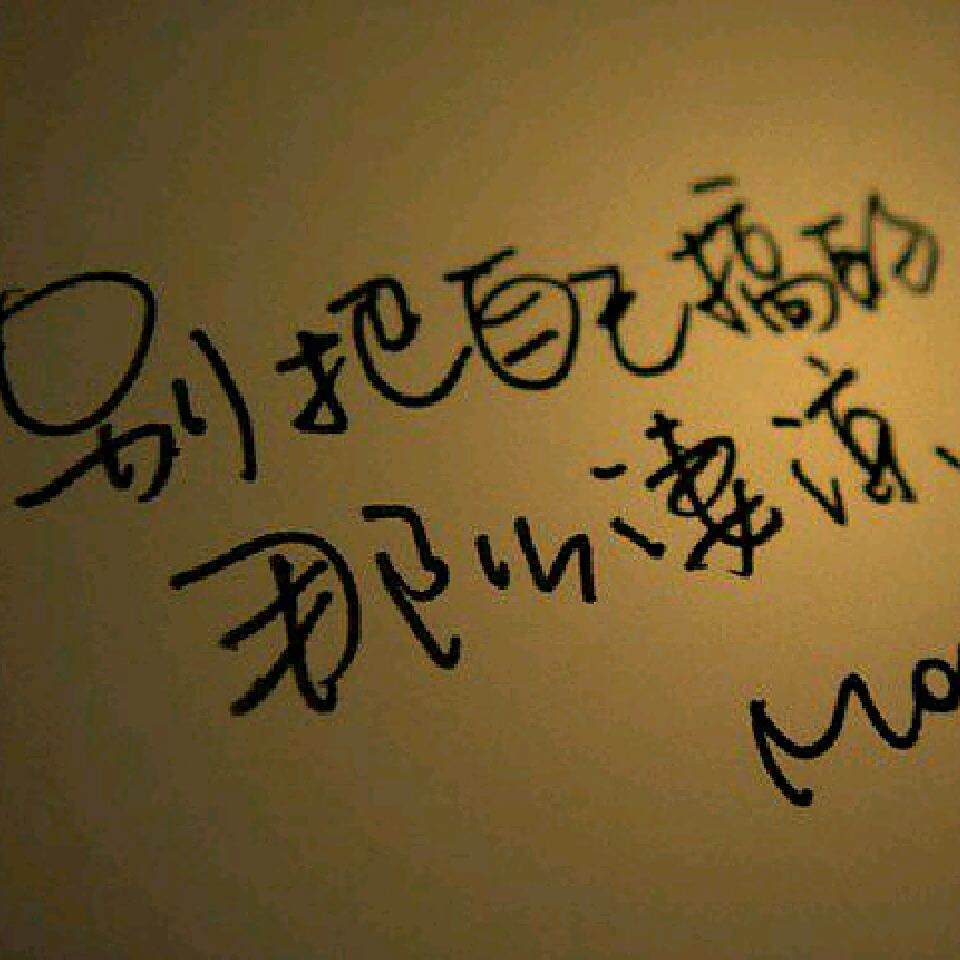 别把自己搞的
那以凄凉、
Mo